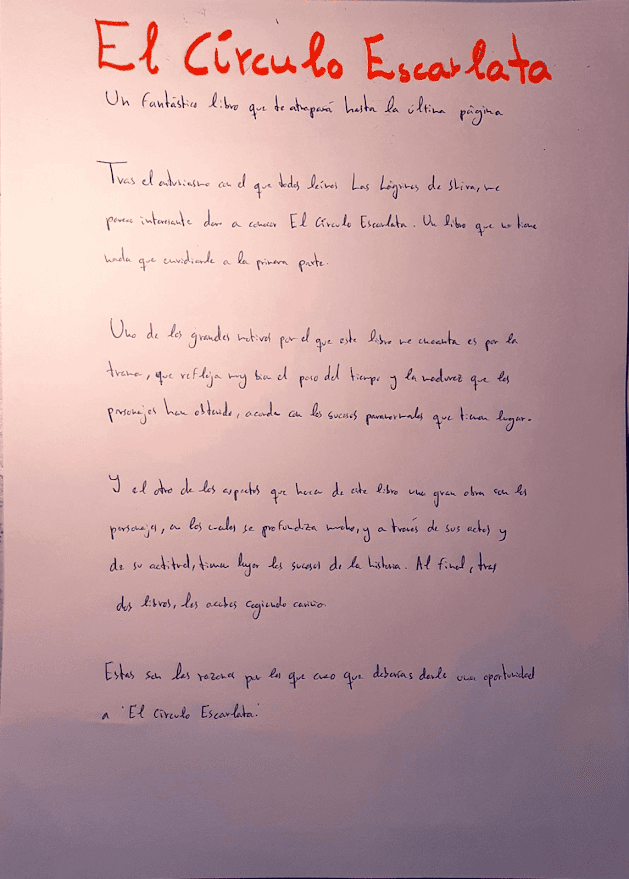 El Círculo Escarlata
Un fantástico libro que te atrapará hasta la última página
Tras el entusiasmo con el que todos leímos Las Lágrimas de Shiva, me
parece interesante daros a conocer El Círculo Escarlata. Un libro que no tiene
nada que envidiarle a la primera parte.
Uno de los grandes motivos por el que este libro me encanta es por la
trama, que refleja muy bien el paso del tiempo y la madurez que los
personajes han obtenido, acorde con los sucesos paranormales que tienen lugar.
Y el otro de los aspectos que hacen de este libro una gran obra son los
personajes, en los cuales se profundiza mucho, y a través de sus actos y
de su actitud, tienen lugar los sucesos de la historia. Al final, tras
dos libros, les acabas cogiendo cariño.
Estas son las razones por las que creo que deberías darle una oportunidad
a 'El Círculo Escarlata.'